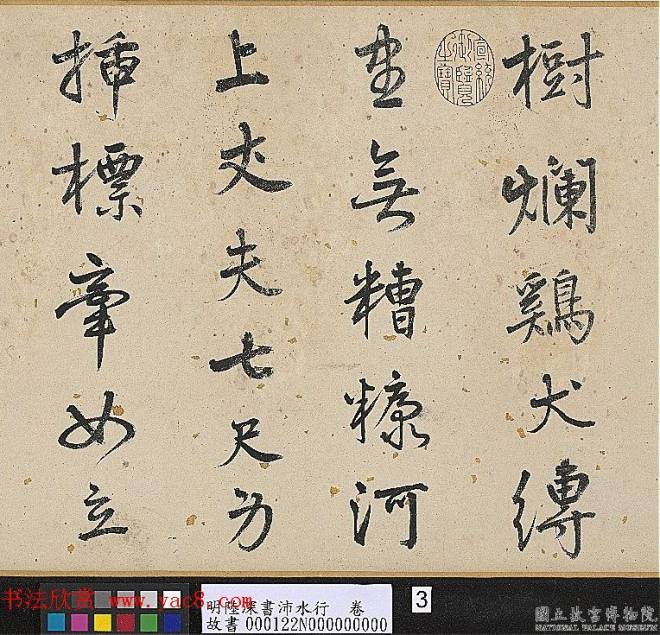 樹爛鷄犬縛
盡無糟糠河
上丈夫七尺身
插標牽女立
宣統御覽之寶
书法欣赏 www.yac8.com
明陸深書沛水行 卷
故書 000122N000000000
3
國立故宮博物院
NATIONAL PALACE MUSEUM